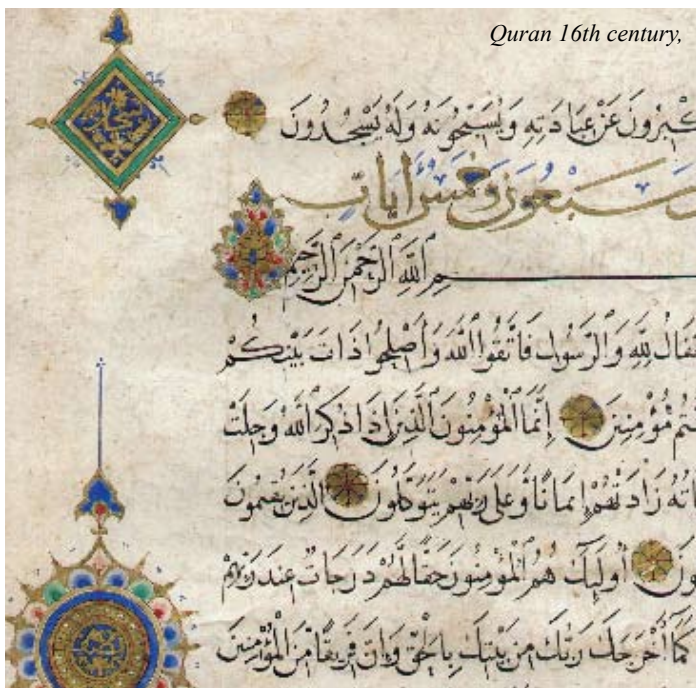 Quran 16th century,
كْبِرُونَ عَنْ عِبَادَتِهِ وَيُسَبِّحُونَهُ وَلَهُ يَسْجُدُونَ
سَبْعُونَ وَخَمْسُ آيَاتٍ
مِ اللَّهِ الرَّحْمَنِ الرَّحِيمِ
نفَالُ لِلَّهِ وَالرَّسُولِ فَاتَّقُوا اللَّهَ وَأَصْلِحُوا ذَاتَ بَيْنِكُمْ
نتُمْ مُؤْمِنِينَ إِنَّمَا الْمُؤْمِنُونَ الَّذِينَ إِذَا ذُكِرَ اللَّهُ وَجِلَتْ
اتُهُ زَادَتْهُمْ إِيمَانًا وَعَلَى رَبِّهِمْ يَتَوَكَّلُونَ الَّذِينَ يُقِيمُونَ
ونَ أُولَئِكَ هُمُ الْمُؤْمِنُونَ حَقًّا لَهُمْ دَرَجَاتٌ عِنْدَ رَبِّهِمْ
كَمَا أَخْرَجَكَ رَبُّكَ مِنْ بَيْتِكَ بِالْحَقِّ وَإِنَّ فَرِيقًا مِنَ الْمُؤْمِنِينَ